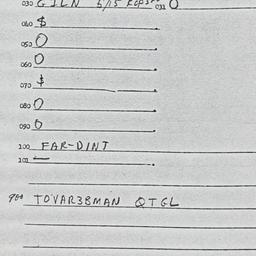 030 GILN 5/15 032 0
040 $
050 0
060 0
070 $
080 0
090 0
100 FAR-DINT
102 —
900 TOVAR38MAN QTGL